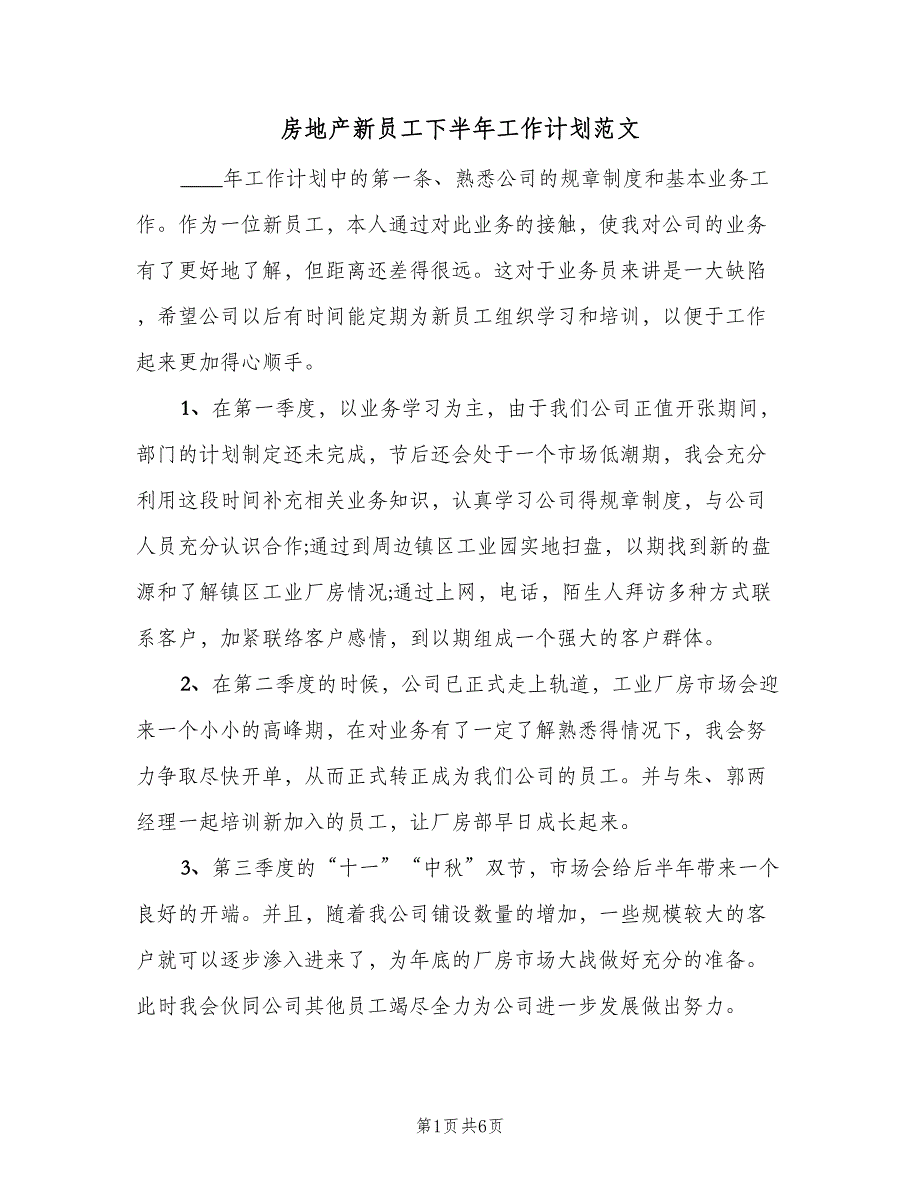 房地产新员工下半年工作计划范文
____年工作计划中的第一条、熟悉公司的规章制度和基本业务工
作。作为一位新员工，本人通过对此业务的接触，使我对公司的业务
有了更好地了解，但距离还差得很远。这对于业务员来讲是一大缺陷
，希望公司以后有时间能定期为新员工组织学习和培训，以便于工作
起来更加得心顺手。
1、在第一季度，以业务学习为主，由于我们公司正值开张期间，
部门的计划制定还未完成，节后还会处于一个市场低潮期，我会充分
利用这段时间补充相关业务知识，认真学习公司得规章制度，与公司
人员充分认识合作;通过到周边镇区工业园实地扫盘，以期找到新的盘
源和了解镇区工业厂房情况;通过上网，电话，陌生人拜访多种方式联
系客户，加紧联络客户感情，到以期组成一个强大的客户群体。
2、在第二季度的时候，公司已正式走上轨道，工业厂房市场会迎
来一个小小的高峰期，在对业务有了一定了解熟悉得情况下，我会努
力争取尽快开单，从而正式转正成为我们公司的员工。并与朱、郭两
经理一起培训新加入的员工，让厂房部早日成长起来。
3、第三季度的“十一”“中秋”双节，市场会给后半年带来一个
良好的开端。并且，随着我公司铺设数量的增加，一些规模较大的客
户就可以逐步渗入进来了，为年底的厂房市场大战做好充分的准备。
此时我会伙同公司其他员工竭尽全力为公司进一步发展做出努力。
第1页 共6页